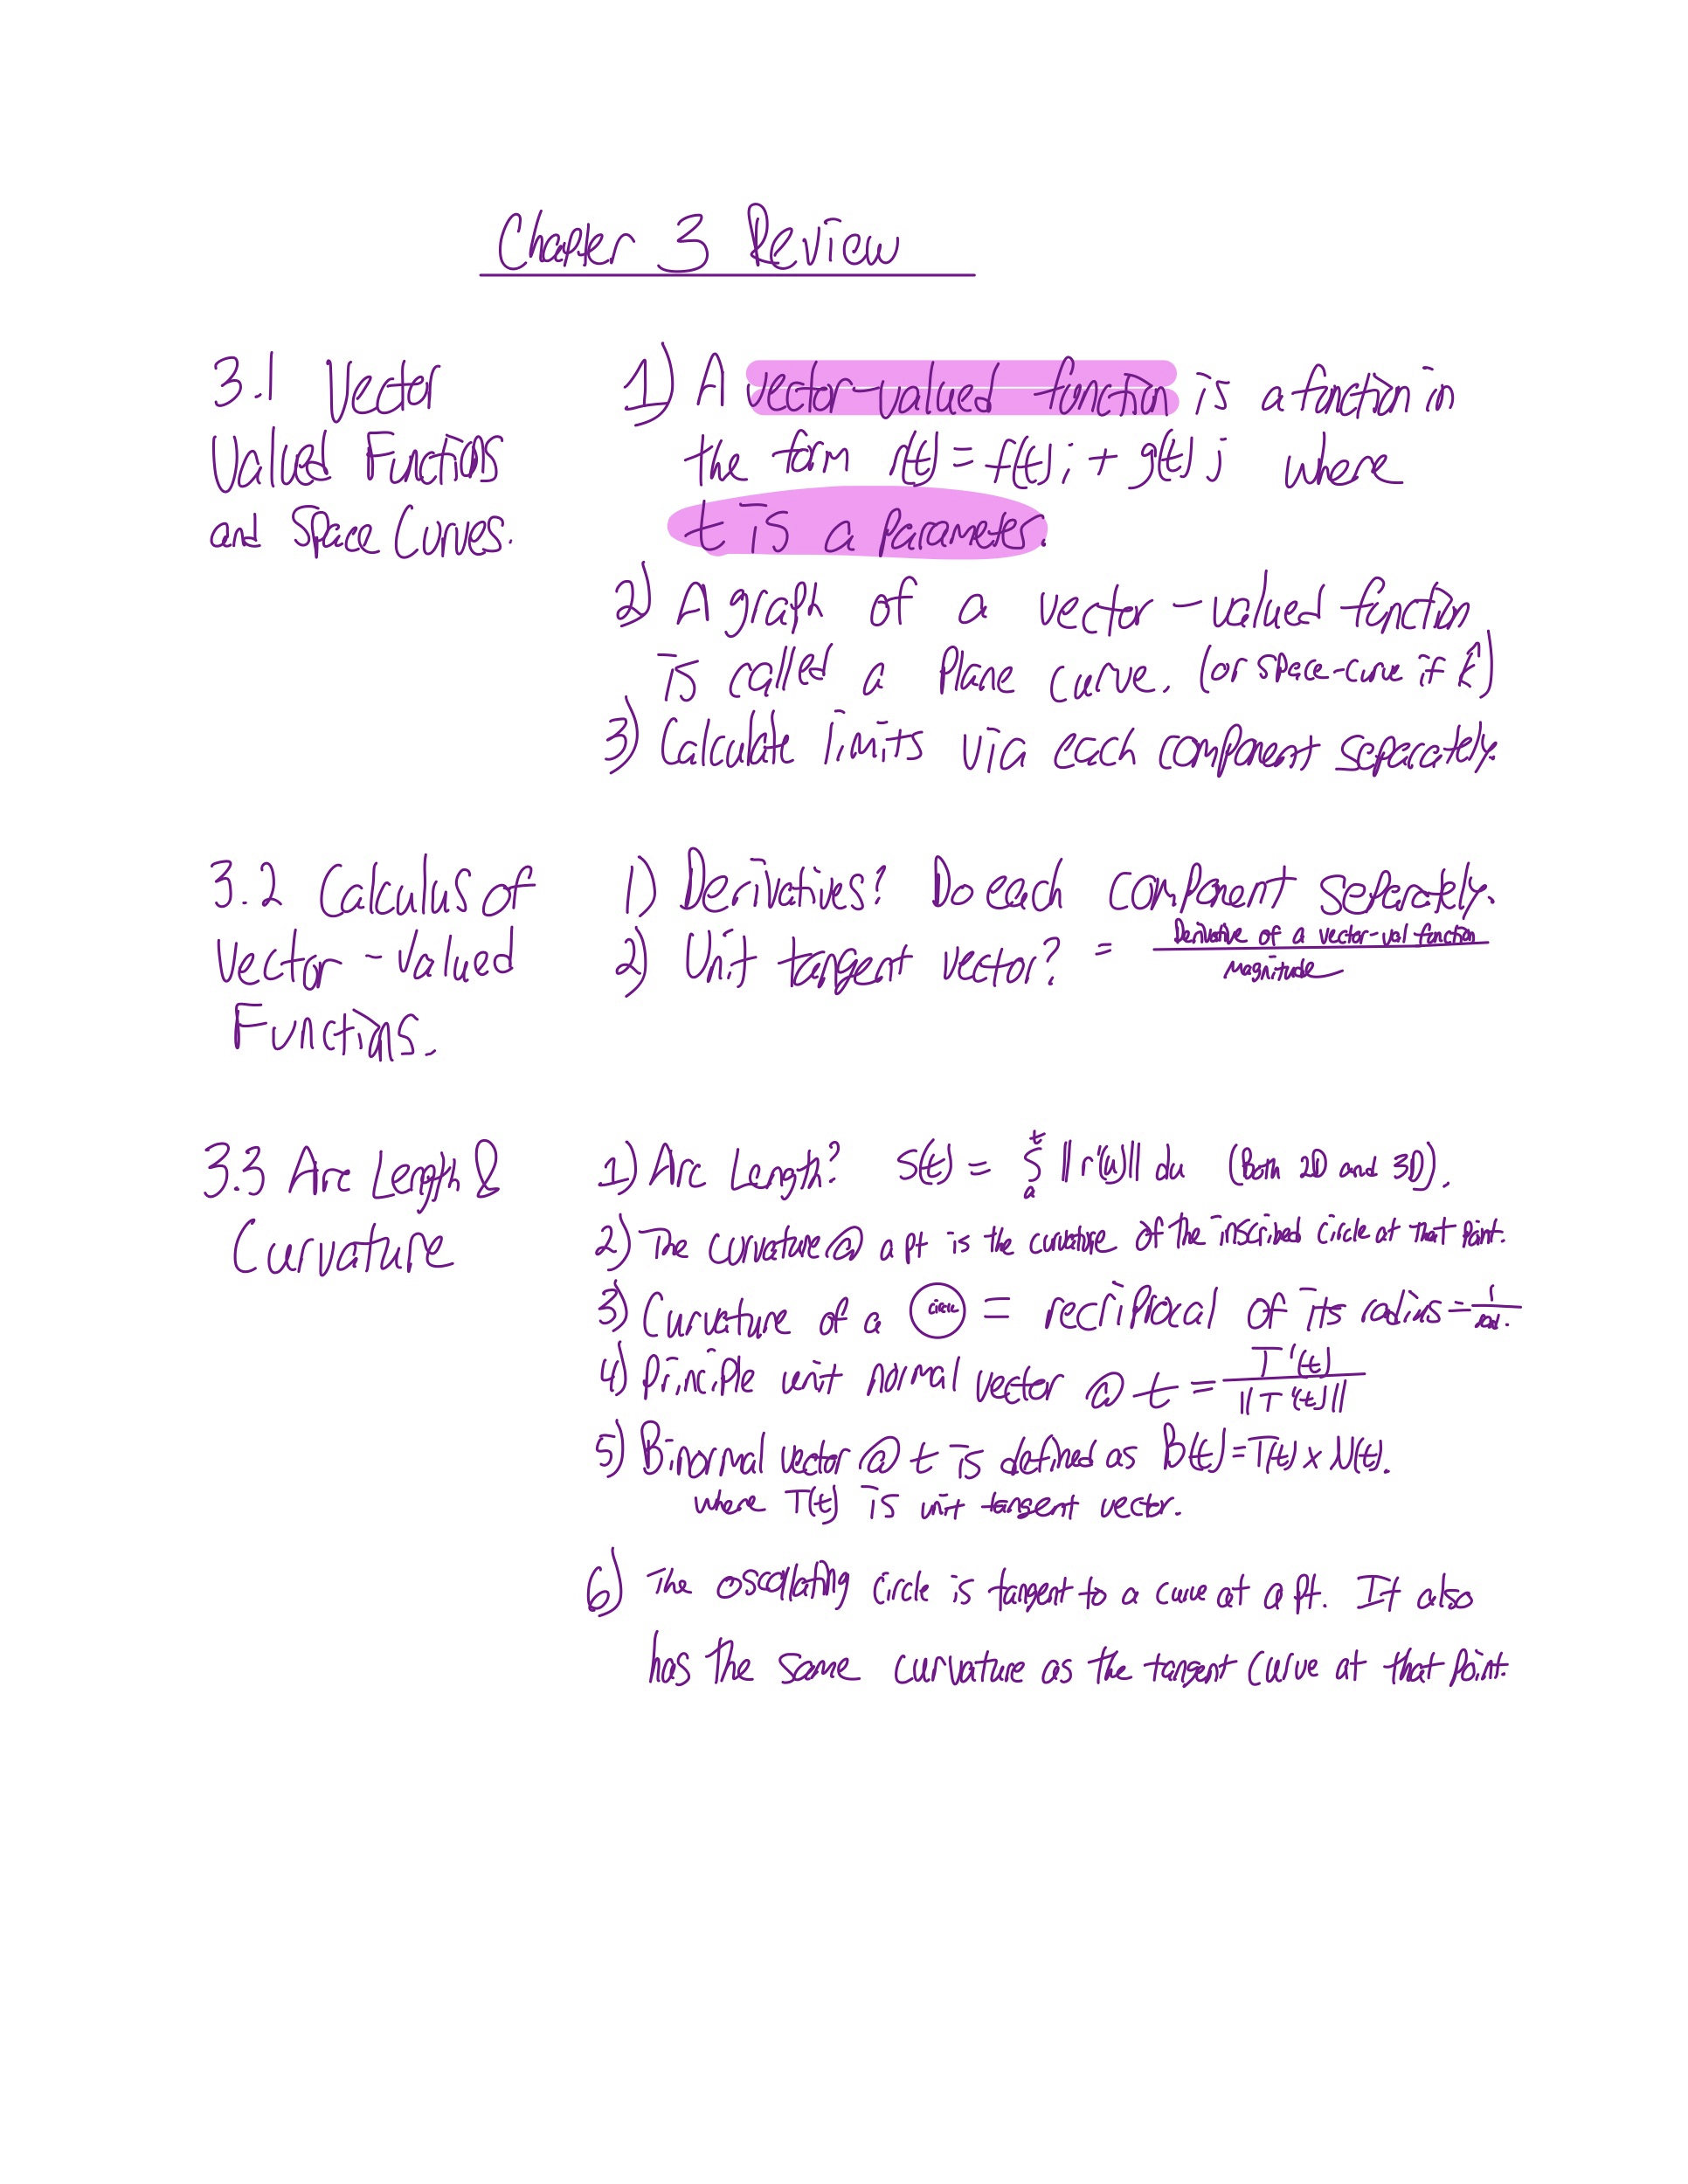 Chapter 3 Review
3.1 Vector
Valued Functions
and Space Curves.
1) A vector-valued function is a function in
the form r(t) = f(t)i + g(t)j where
t is a parameter.
2) A graph of a vector-valued function
is called a plane curve. (or space-curve if k̂)
3) Calculate limits via each component separately.
3.2 Calculus of
Vector-Valued
Functions.
1) Derivatives? Do each component seperately.
2) Unit tangent vector? = Derivative of a vector-val function
magnitude
3.3 Arc Length &
Curvature
1) Arc Length? S(t) = ∫ₐᵗ ||r'(u)|| du (Both 2D and 3D).
2) The curvature @ a pt is the curvature of the inscribed circle at that point.
3) Curvature of a circle = reciprocal of its radius = 1/rad.
4) Principle unit normal vector @ t = T'(t)/||T'(t)||
5) Binormal vector @ t is defined as B(t) = T(t) x N(t).
where T(t) is unit tangent vector.
6) The circle is tangent to a curve at a pt. It also
has the same curvature as the tangent curve at that point.